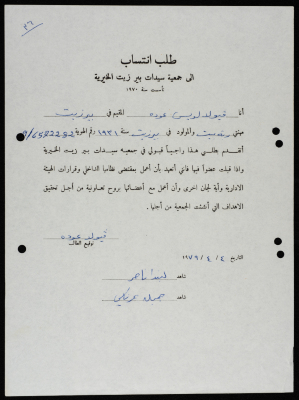 ٣٦
طلب انتساب
الى جمعية سيدات بير زيت الخيرية
تأسست سنة ١٩٧٠
أنا فيوليت لويس عوده المقيم في بيرزيت
مهنتي والمولود في بيرزيت سنة ١٩٣١ رقم الهوية 9/6582232
أتقدم بطلبي هذا راجياً قبولي في جمعية سيدات بير زيت الخيرية
واذا قبلت عضواً فيها فاني أتعهد بأن أعمل بمقتضى نظامها الداخلي وقرارات الهيئة
الادارية وأية لجان اخرى وأن أعمل مع أعضائها بروح تعاونية من أجل تحقيق
الاهداف التي أنشئت الجمعية من أجلها .
عوده
توقيع الطالب
التاريخ ٤ / ٤ / ١٩٧٩
شاهد ناصر
شاهد